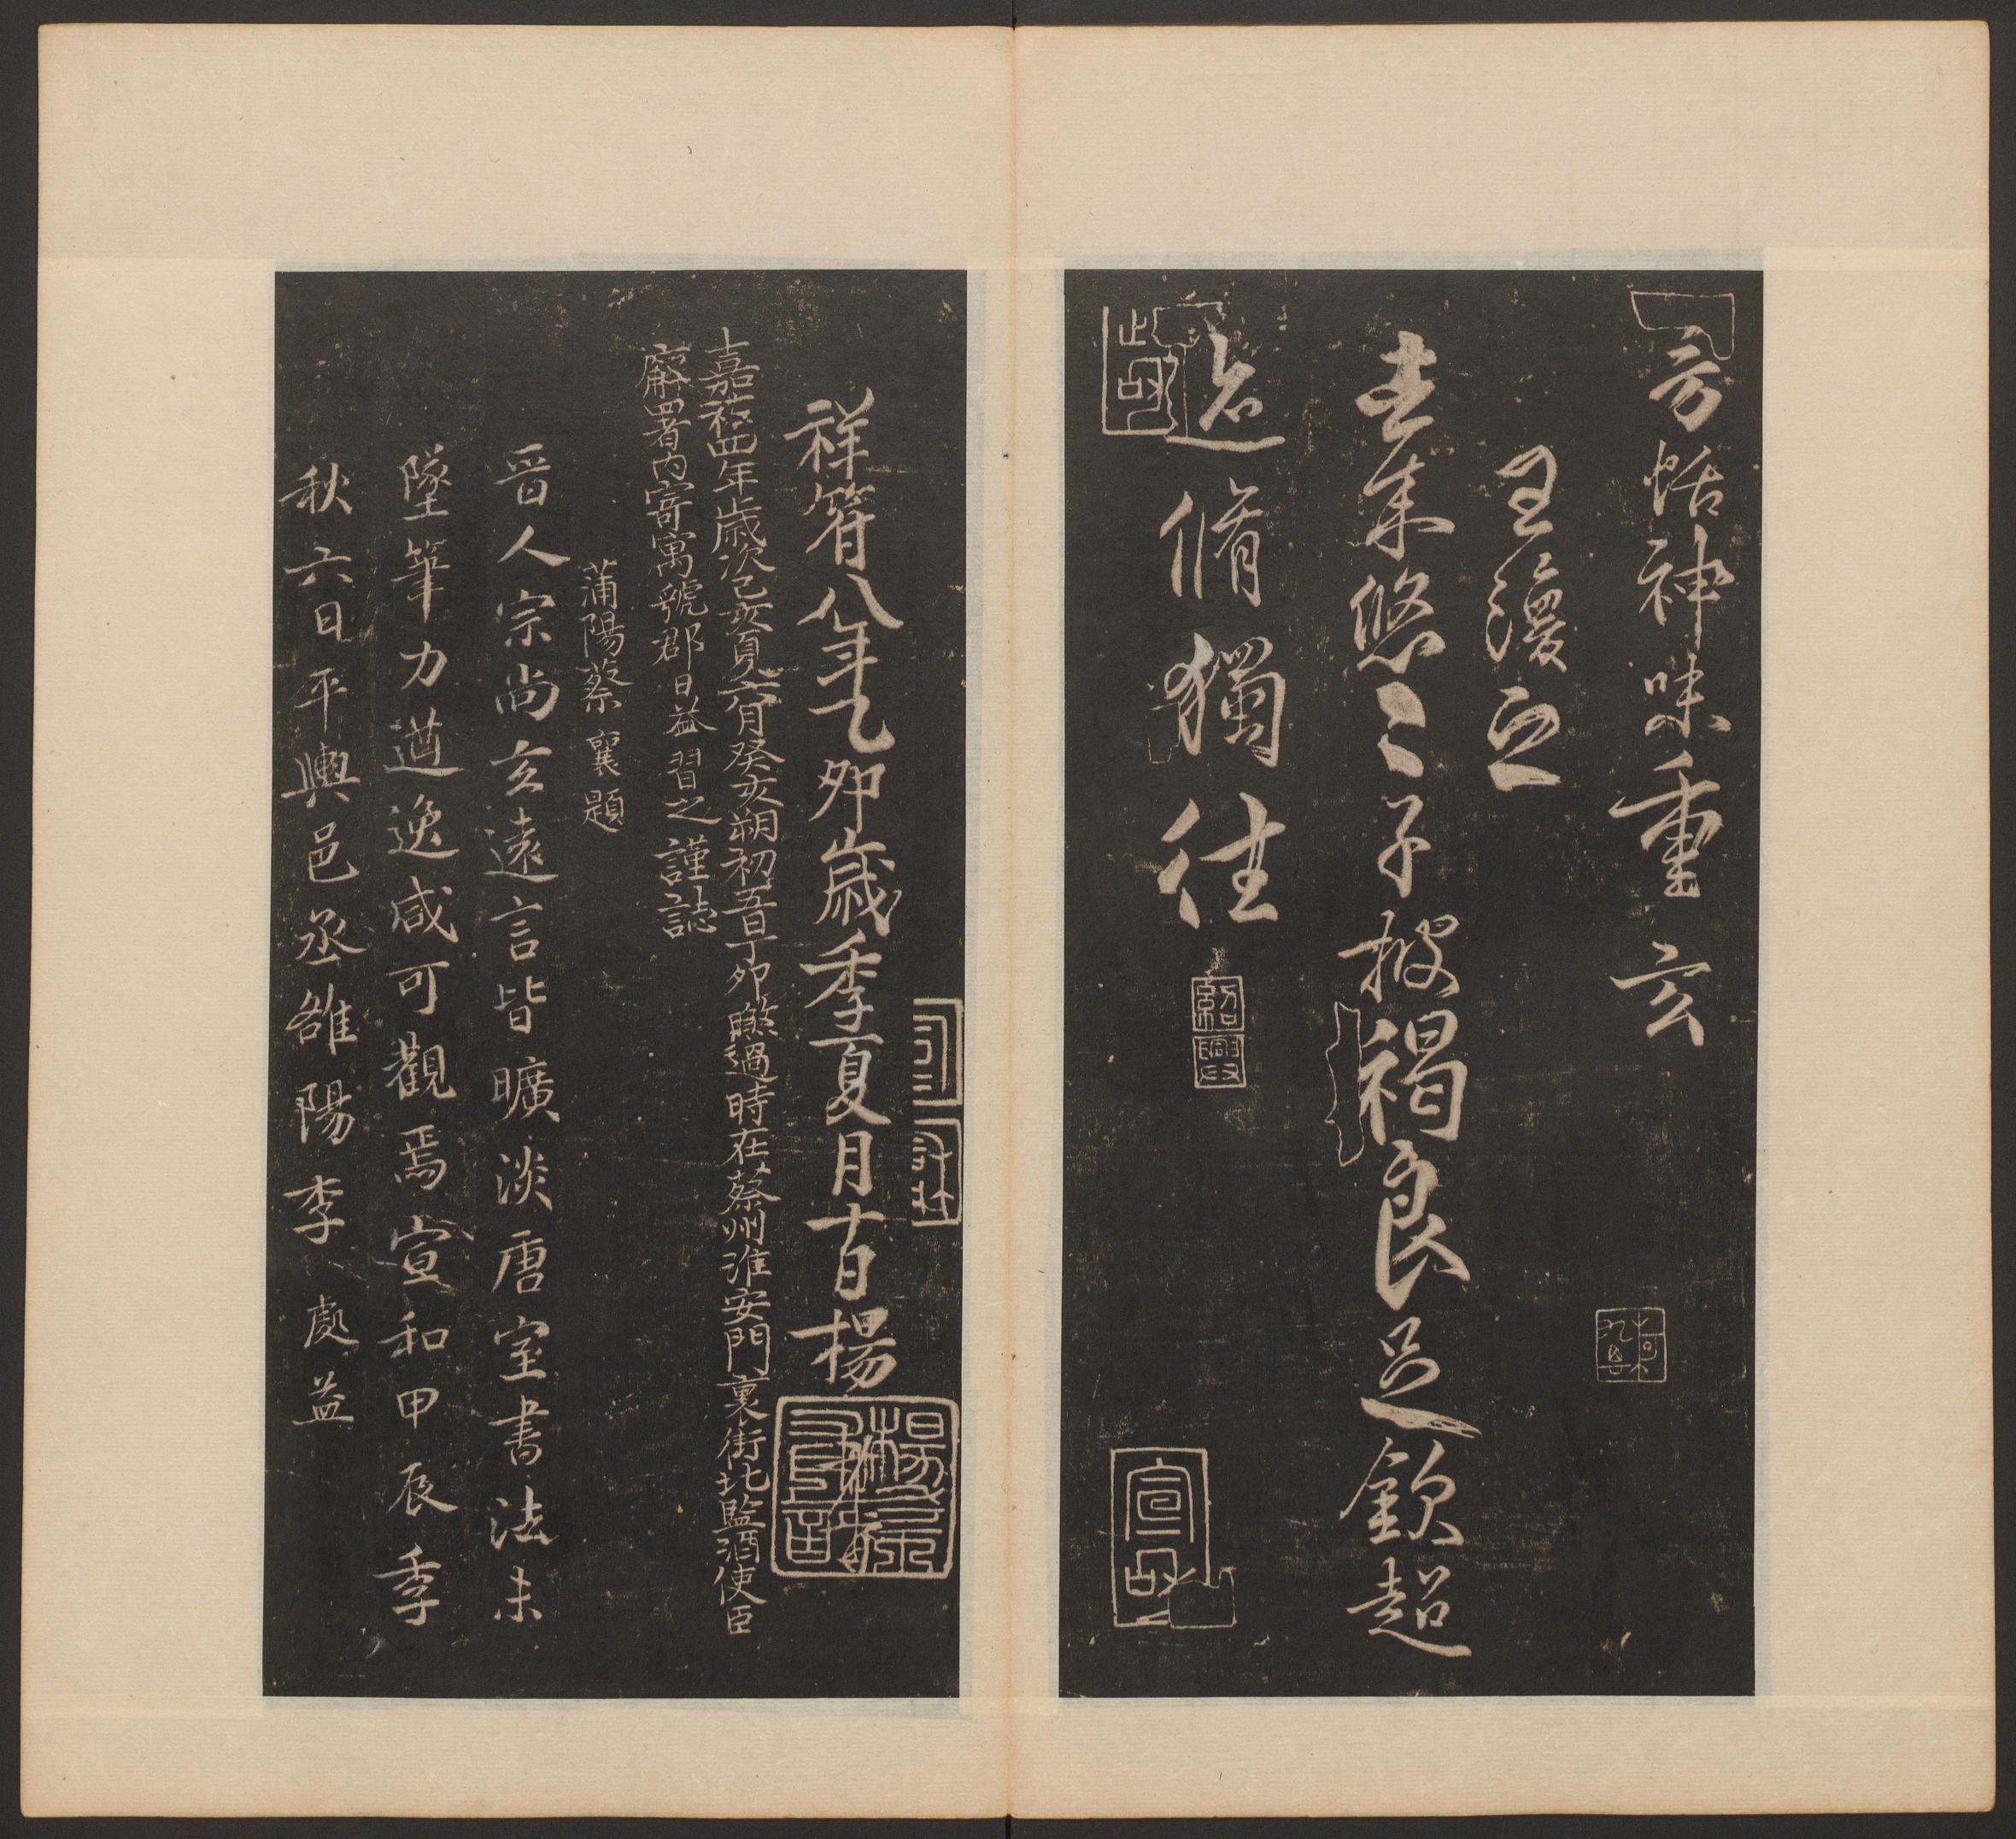 方恬神味重玄
王渙之
去来悠〻子披褐良足欽超
迹脩獨往
紹興
祥符八年乙卯歲季夏月十一日楊
嘉祐四年歲次己亥夏六月癸亥朔初五日丁卯過時在蔡州淮安門裏街北監酒使臣
廨署内寄寓虢郡日益習之謹誌
蒲陽蔡襄題
晉人宗尚玄遠言皆曠淡唐室書法未
墜筆力遒逸咸可觀焉宣和甲辰季
秋六日平輿邑丞雒陽李處益